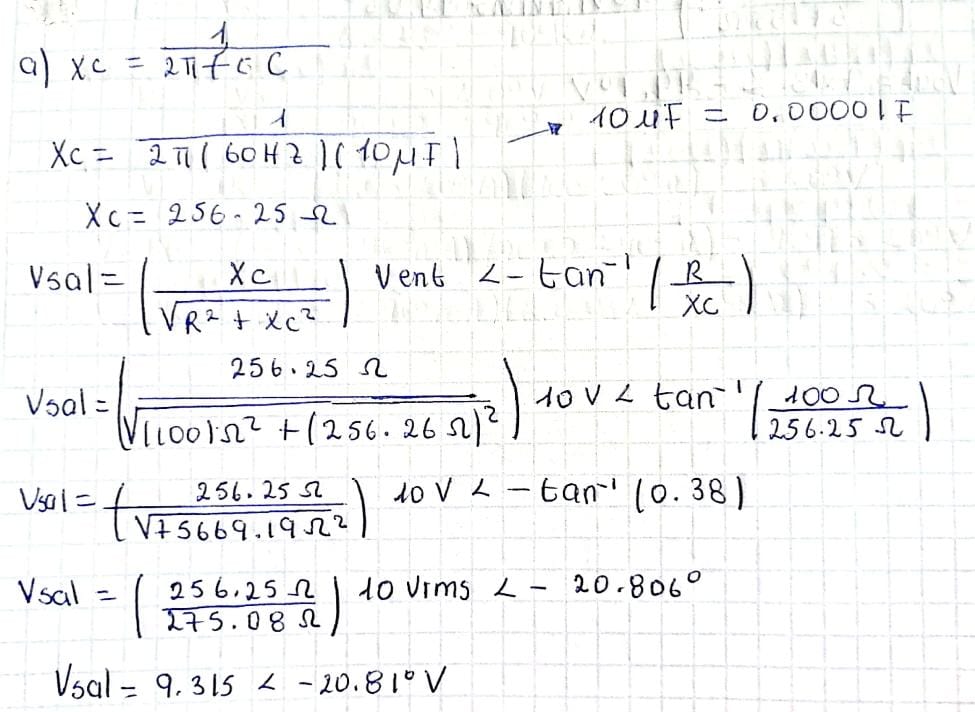 a) Xc = 1 / 2πfcC
Xc = 1 / 2π(60Hz)(10μF) → 10μF = 0.00001F
Xc = 256.25 Ω
Vsal = (Xc / √R² + Xc²) Vent ∠- tan⁻¹ (R / Xc)
Vsal = (256.25 Ω / √(100)Ω² + (256.26 Ω)²) 10V ∠ tan⁻¹ (100 Ω / 256.25 Ω)
Vsal = (256.25 Ω / √75669.19Ω²) 10V ∠ - tan⁻¹ (0.38)
Vsal = (256.25 Ω / 275.08 Ω) 10 Vrms ∠ - 20.806°
Vsal = 9.315 ∠ -20.81° V